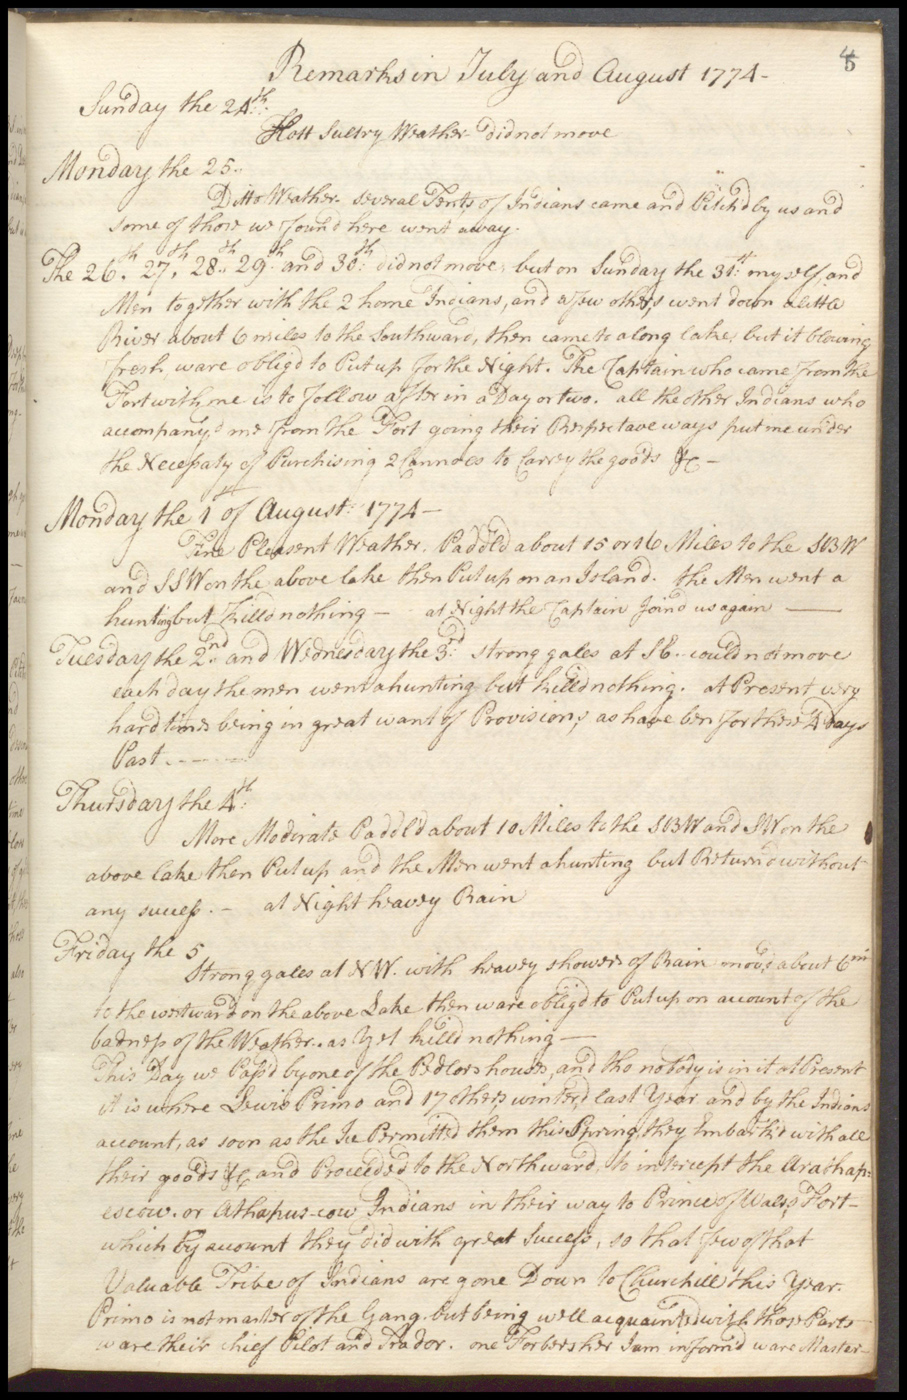 Remarks in July and August 1774-
5
Sunday the 24th.
Hott Sultry Weather didnot move
Monday the 25..
Ditto Weather. several Tents, of Indians came and Pitch'd by us and
some of those we found here went away.
The 26th. 27th, 28th.. 29th and 30th: did not move, but on Sunday the 31st: myself and
Men together with the 2 home Indians, and a few others, went down a little
River about 6 miles to the Southward, then came to a long lake, but it blowing
fresh ware obligd to Put up for the Night. The Captain who came from the
Fort with me is to follow after in a Day or two. all the other Indians who
accompany'd me from the Fort going their Respectave ways put me under
the Necessaty of Purchising 2 Cannoes to Carrey the goods &c -
Monday the 1st of August. 1774 -
Fine Pleasent Weather. Paddld about 15 or 16 Miles to the SBW
and SSW on the above lake then Put up on an Island. the Men went a
hunting but killd nothing - at Night the Captain Joind us again -
Tuesday the 2nd.. and Wednesday the 3rd: strong gales at SE.. could not move
each day the men went a hunting but killd nothing. at Present very
hard times being in great want of Provisions, as have ben for these 4 Days
Past . - - - -
Thursday the 4th:
More Moderate Paddl'd about 10 Miles to the SBW and SW on the
above lake then Put up and the Men went a hunting but Return'd without
any success. - at Night heavey Rain
Friday the 5
Strong gales at NW. with heavey showers of Rain mov'd about 6m
to the westward on the above Lake then ware obligd to Put up on account of the
badness of the Weather.. as Yet killd nothing -
This Day we Pass'd by one of the Pedlors houses, and tho nobody is in it at Present
it is where Lewis Primo and 17 others, winter'd last Year and by the Indians
account, as soon as the Ice Permitted them this Spring, they Imbark'd with all
their goods &c, and Proceeded to the Northward, to intercept the Arathap=
escow. or Athapus-cow Indians in their way to Prince of Wales, Fort -
which By account they did with great Success, so that few of that
Valuable Tribe of Indians are gone Down to Churchill this Year.
Primo is not master of the Gang. but being well acquainted with those Parts
ware their chief Pilot and Trador. one Forbersher I am inform'd ware Master